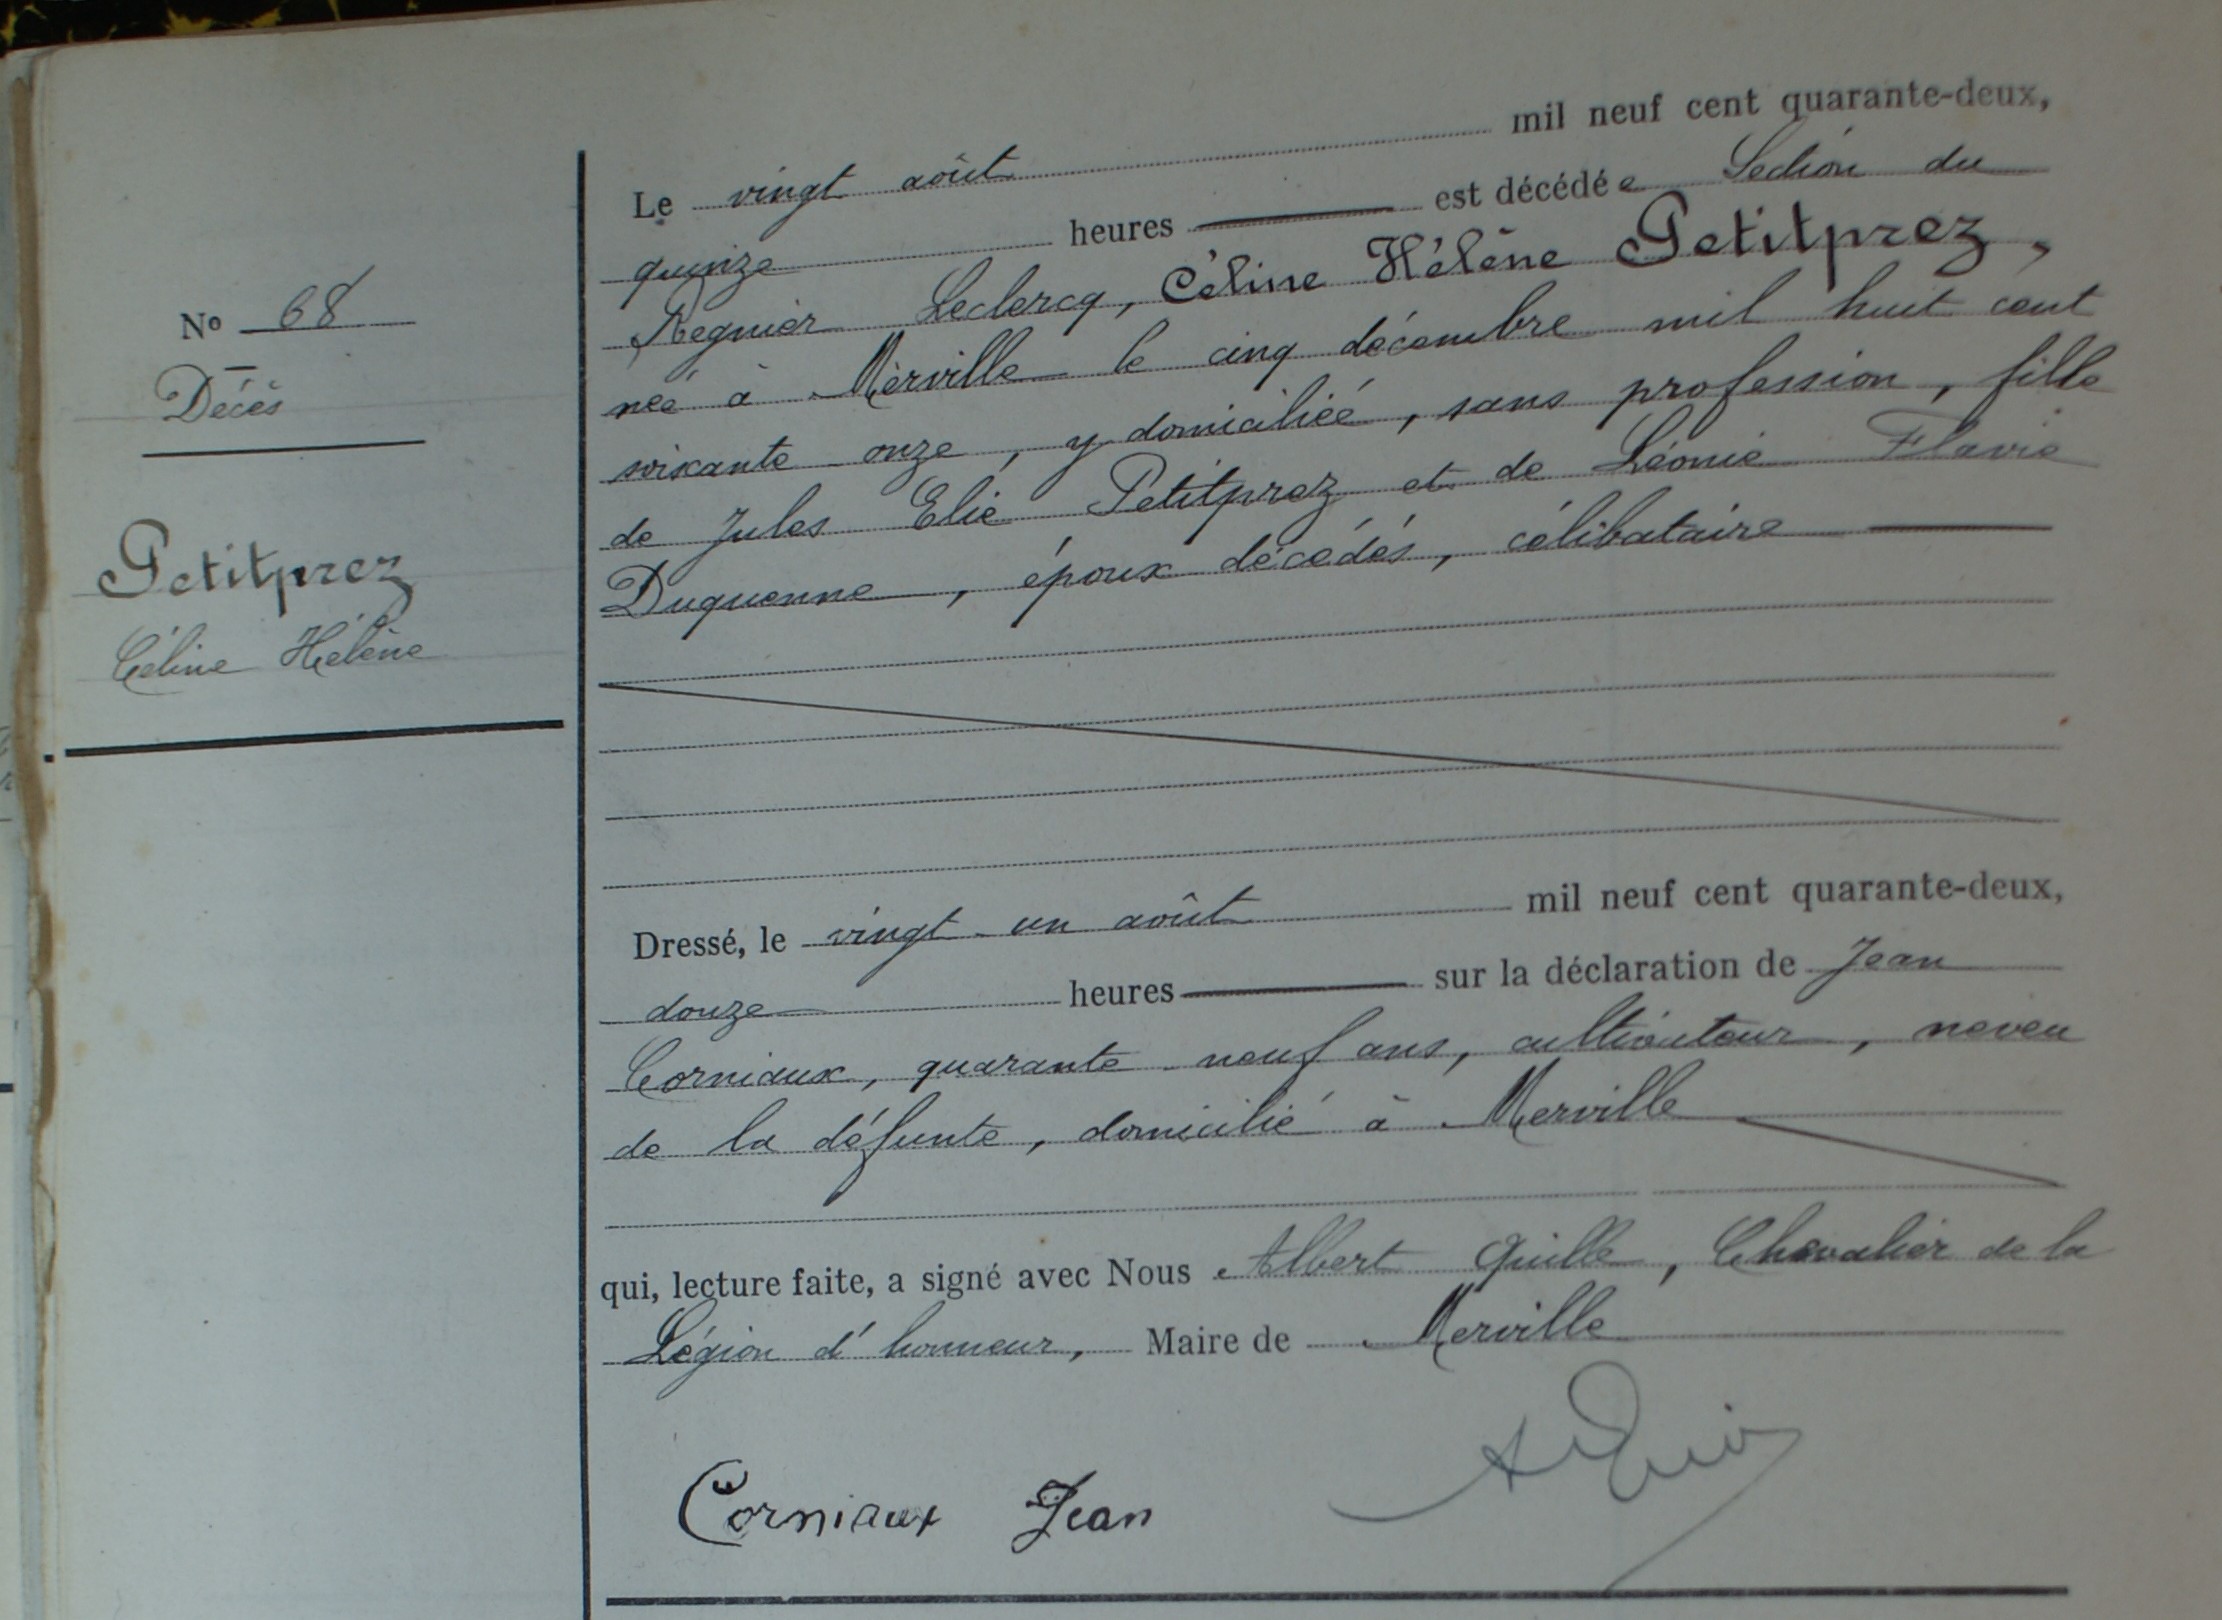 N° 68
Décès
Petitprez
Céline Hélène
Le vingt août mil neuf cent quarante-deux,
quinze heures est décédée Section du
Regnier Leclercq, Céline Hélène Petitprez,
née à Merville le cinq décembre mil huit cent
soixante onze, y domiciliée, sans profession, fille
de Jules Elie Petitprez et de Léonie Flavie
Duquenne, époux décédés, célibataire
Dressé, le vingt-un août mil neuf cent quarante-deux,
douze heures sur la déclaration de Jean
Corniaux, quarante-neuf ans, cultivateur, neveu
de la défunte, domicilié à Merville
qui, lecture faite, a signé avec Nous Albert Quille, Chevalier de la
Légion d'honneur, Maire de Merville
Corniaux Jean